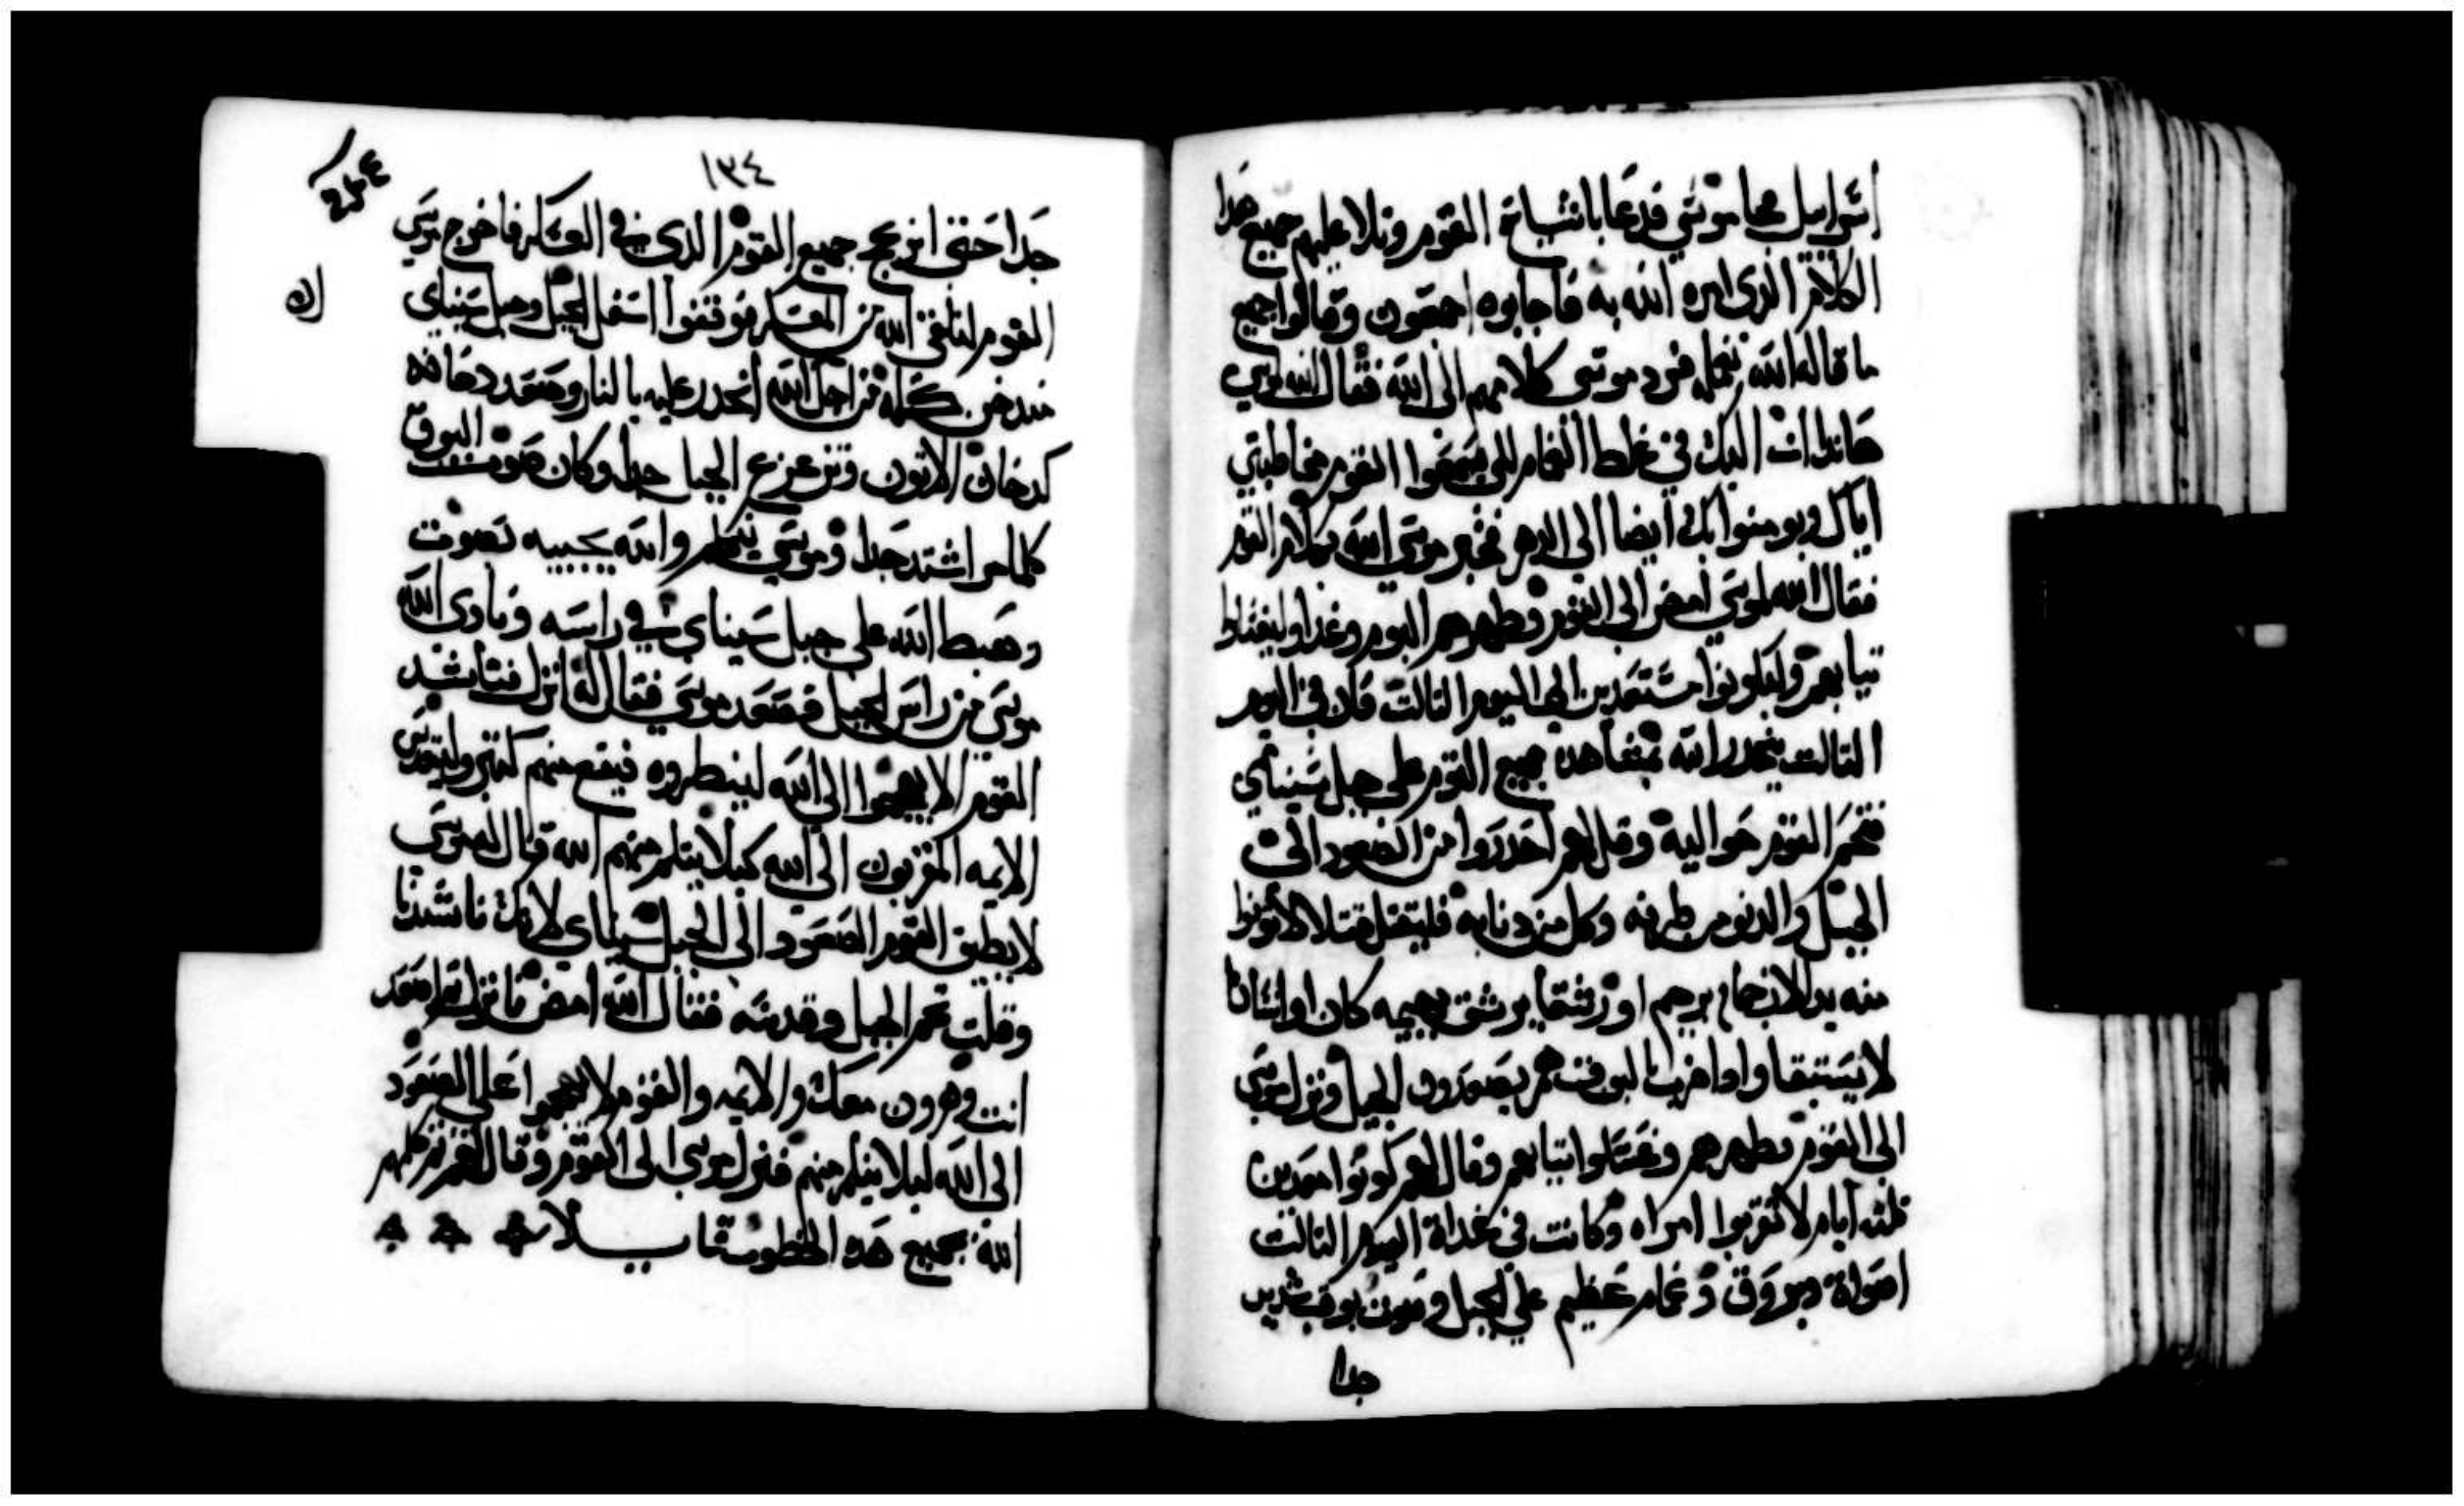 اسراييل فجا موسي فدعا باشياخ القوم وتلا عليهم جميع هدا
الكلام الدي امره الله به فاجابوه اجمعون وقالوا جميع
ما قاله الله نعمله فرد موسى كلامهم الى الله فقال الله لموسي
هاندا ات اليك في غلط الغمام لكي يسمعوا القوم مخاطبتي
اياك ويومنوا بك ايضا الي الدهر فخبر موسي الله بكلام القوم
فقال الله لموسي امض الي القوم وطهرهم اليوم وغدا وليغسلوا
تيابهم وليكونوا مستعدين الي اليوم التالت فان في اليوم
التالت ينحدر الله بمشاهده جميع القوم علي جبل سيناي
فتخم القوم حواليه وقل لهم احدروا من الصعود الى
الجبل والدنو من طرفه وكل من دنا به فليقتل قتلا لا تدنوا
منه يد الا رجما يرجم او رشقا يرشق بهيمه كان او انسانا
لا يستبقا وادا ضرب بالبوق هم يصعدون الجبل ونزل موسي
الي القوم فطهرهم وغسلوا تيابهم وقال لهم كونوا معدين
تلته ايام لا تقربوا امراه وكانت في غداة اليوم التالت
اصواة وبروق وغمام عظيم علي الجبل وصوت بوق شديد
جدا
١٣٤
جدا حتى انزعج جميع القوم الدي في العسكر فاخرج موسي
القوم لتلقى الله من المعسكر فوقفوا اسفل الجبل وجبل سيناي
مدخن كله من اجل الله انحدر عليه بالنار وصعد دخانه
كدخان الاتون وتزعزع الجبل جدا وكان صوت البوق
كلما مر اشتد جدا وموسي يتكلم والله يجيبه بصوت
وهبط الله علي جبل سيناي في راسه ونادى الله
موسي من راس الجبل فصعد موسي فقال له انزل فناشد
القوم الا يهجموا الي الله لينطروه فيقع منهم كتير وليتقدس
الايمه المقربون الي الله كيلا يتلم منهم الله قال له موسي
لا يطيق القوم الصعود الي الجبل سيناي لانك ناشدتنا
وقلت تخم الجبل وقدسه فقال الله امض فانزل تم اصعد
انت وهرون معك والايمه والقوم لا يهجموا علي الصعود
الي الله ليلا يتلم منهم فنزل موسي الي القوم وقال لهم تم كلمهم
الله بجميع هده الخطوب قايلا